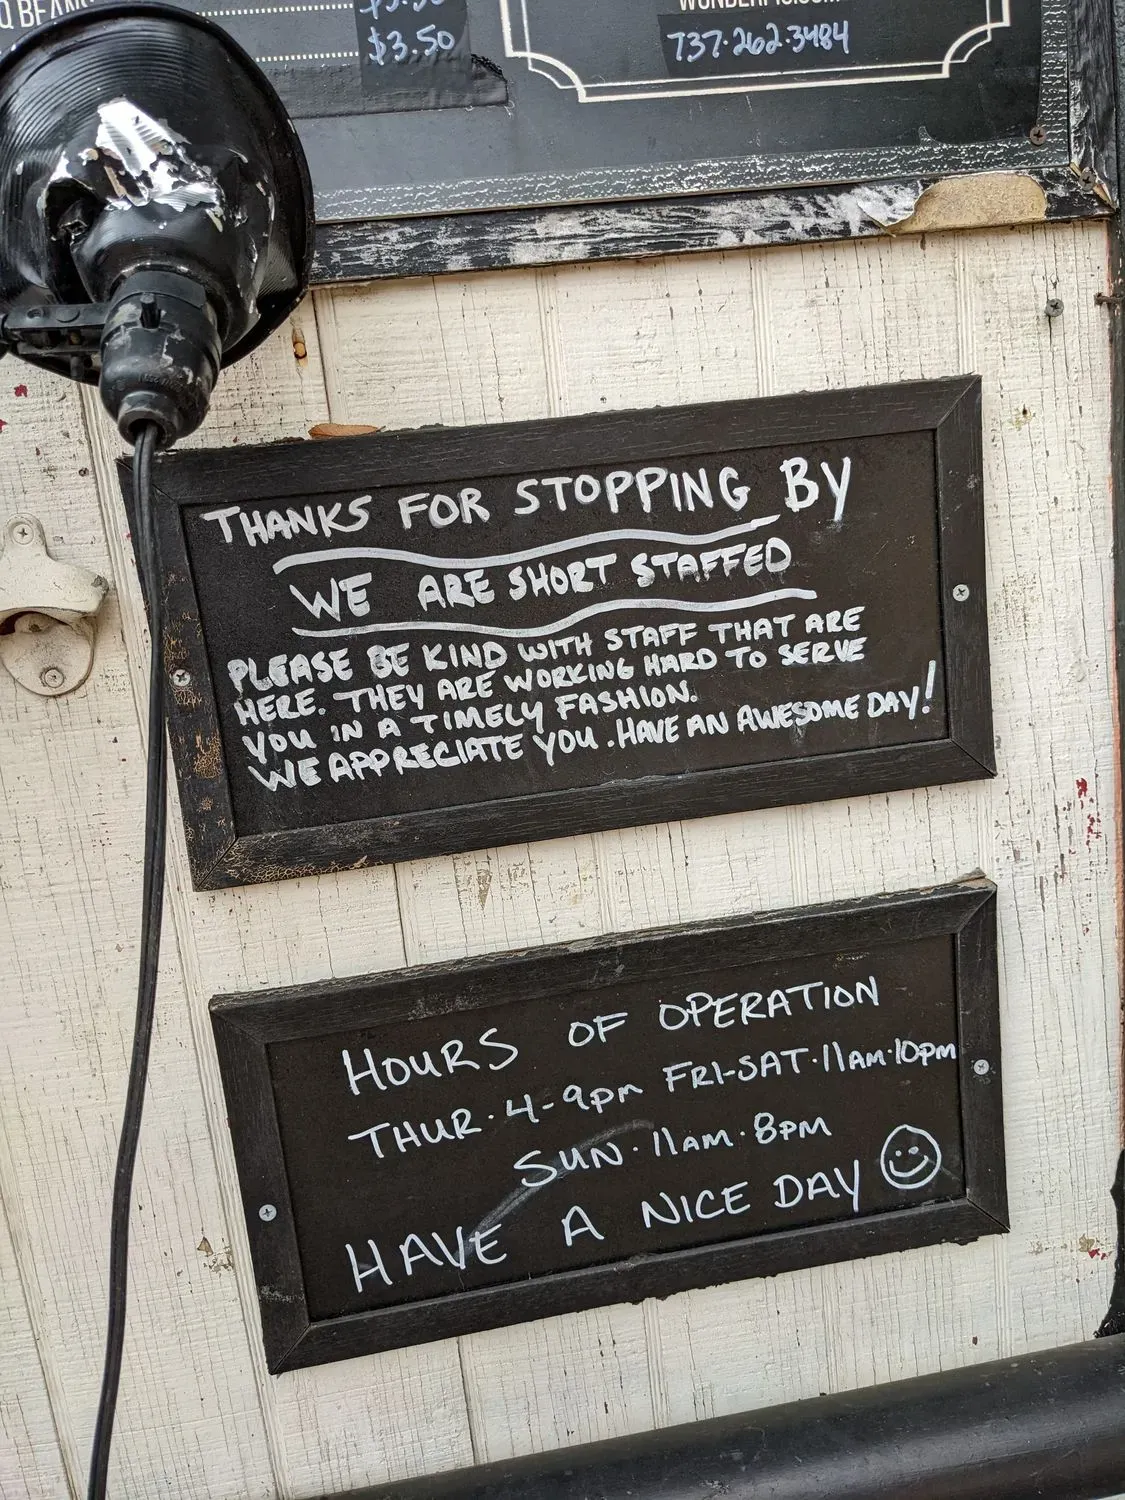 $3.50
737·262.3484
THANKS FOR STOPPING BY
WE ARE SHORT STAFFED
PLEASE BE KIND WITH STAFF THAT ARE
HERE. THEY ARE WORKING HARD TO SERVE
YOU IN A TIMELY FASHION.
WE APPRECIATE YOU. HAVE AN AWESOME DAY!
HOURS OF OPERATION
THUR· 4-9pm FRI-SAT·11AM·10pm
SUN·11AM·8PM
HAVE A NICE DAY